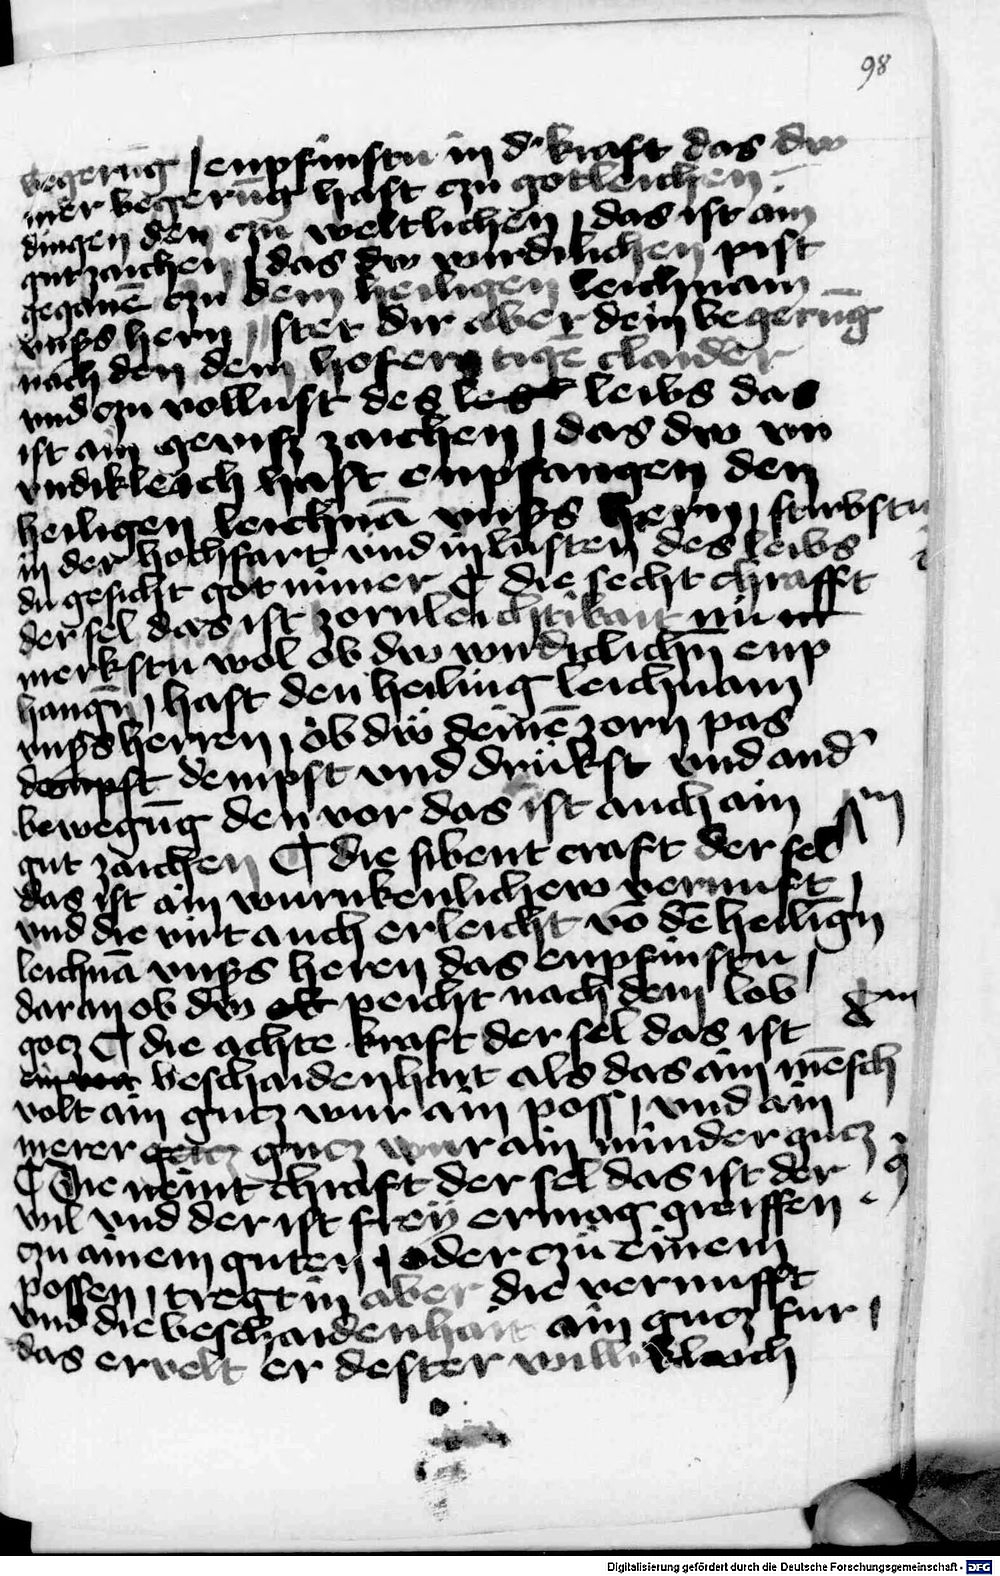 98
begerūg / enpfinstu in d' kraft das dw
mer begerūg hast czu gotleichen
dingen den czu weltlichen / das ist ain
gut zaichen / das dw wirdilichen pist
gegāнē czu dem heiligen leichnam
unßs hern // stet dir aber dein begerūg
nach den dem hofer tigē claider
und czu vollust des leibs das
ist ain gewisz zaichen / das dw un
undikleich hast enpfangen den
heiligen leichnā unßs hern / stirbstu
in der hochfart und in lusten des leibs
du gesicht got nimer ¶ die secht chrafft
der sel das ist zornleichtikait nu
merkstu wol ob dw wirdiclichn̄ enp
hangn̄ / hast den heiling leichnam
unßs herren / ob dw deinē zorn pas
dempst dempst und drukst und and'
bewegūg den vor das ist auch ain
gut zaichen ¶ die sibent craft der sel
das ist ain wurnkenlichew vernuft /
und die wirt auch erleicht vō dē heilign̄
leichnā unßs heren das enpfinstu /
dar an ob dw peicht nach dem lob
gocz ¶ die achte kraft der sel das ist
beschaidenhait als das ain mēsch
volt ain gucz wur ain poss / und ain
merer gucz wur ain minder gucz
¶ Die neint chraft der sel das ist der
wil und der ist freÿ er mag greiffen
czu ainem guten / oder czu einem
possen / tregt in aber die vernufft
und die beschaidenhait ain gucz fur /
das ervelt er dester willikleich
Digitalisierung gefördert durch die Deutsche Forschungsgemeinschaft - DFG